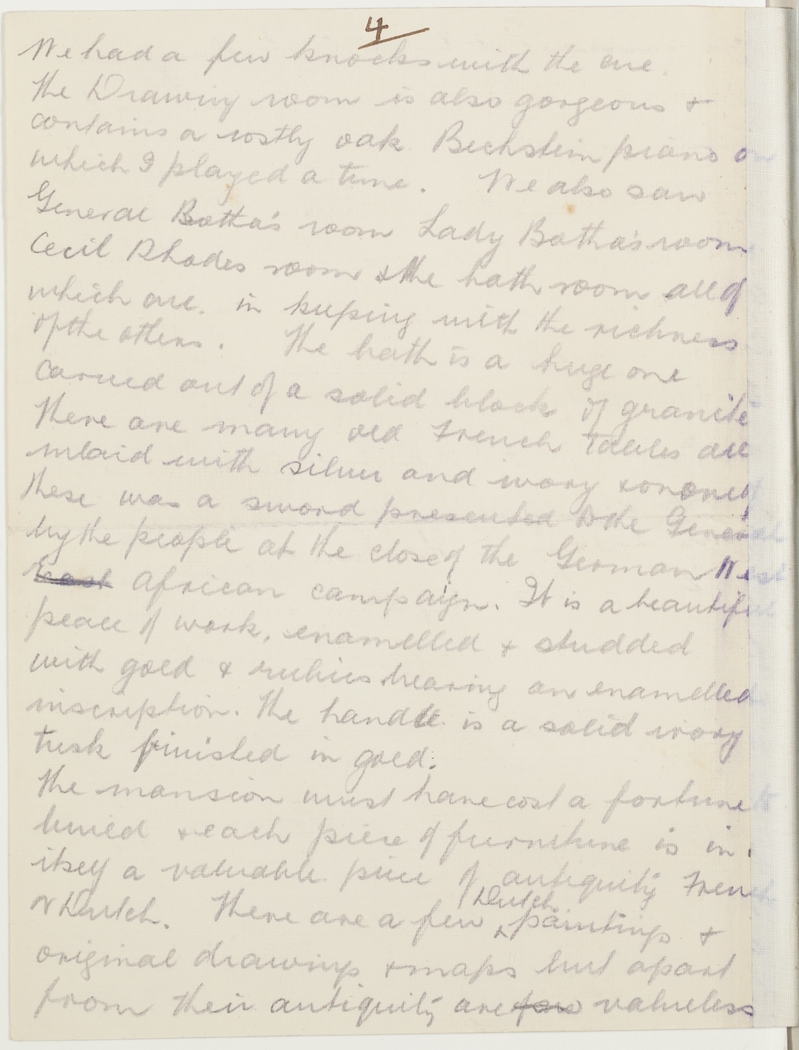 4
We had a few knocks with the cue.
The Drawing room is also gorgeous &
contains a costly oak Bechstein piano on
which I played a tune. We also saw
General Botha's room Lady Botha's room
Cecil Rhodes room & the bath room all of
which are in keeping with the richness
of the others. The bath is a huge one
carved out of a solid block of granite
There are many old French Tables all
inlaid with silver and ivory & on one of
these was a sword presented to the General
by the people at the close of the German West
East African campaign. It is a beautiful
peace of work, enamelled & studded
with gold & rubies bearing an enamelled
inscription. The handle is a solid ivory
tusk finished in gold.
The mansion must have cost a fortune to
build & each piece of furniture is in
itself a valuable piece of antiquity French
Dutch
& Dutch. There are a few paintings &
original drawings & maps but apart
from their antiquity are valueless